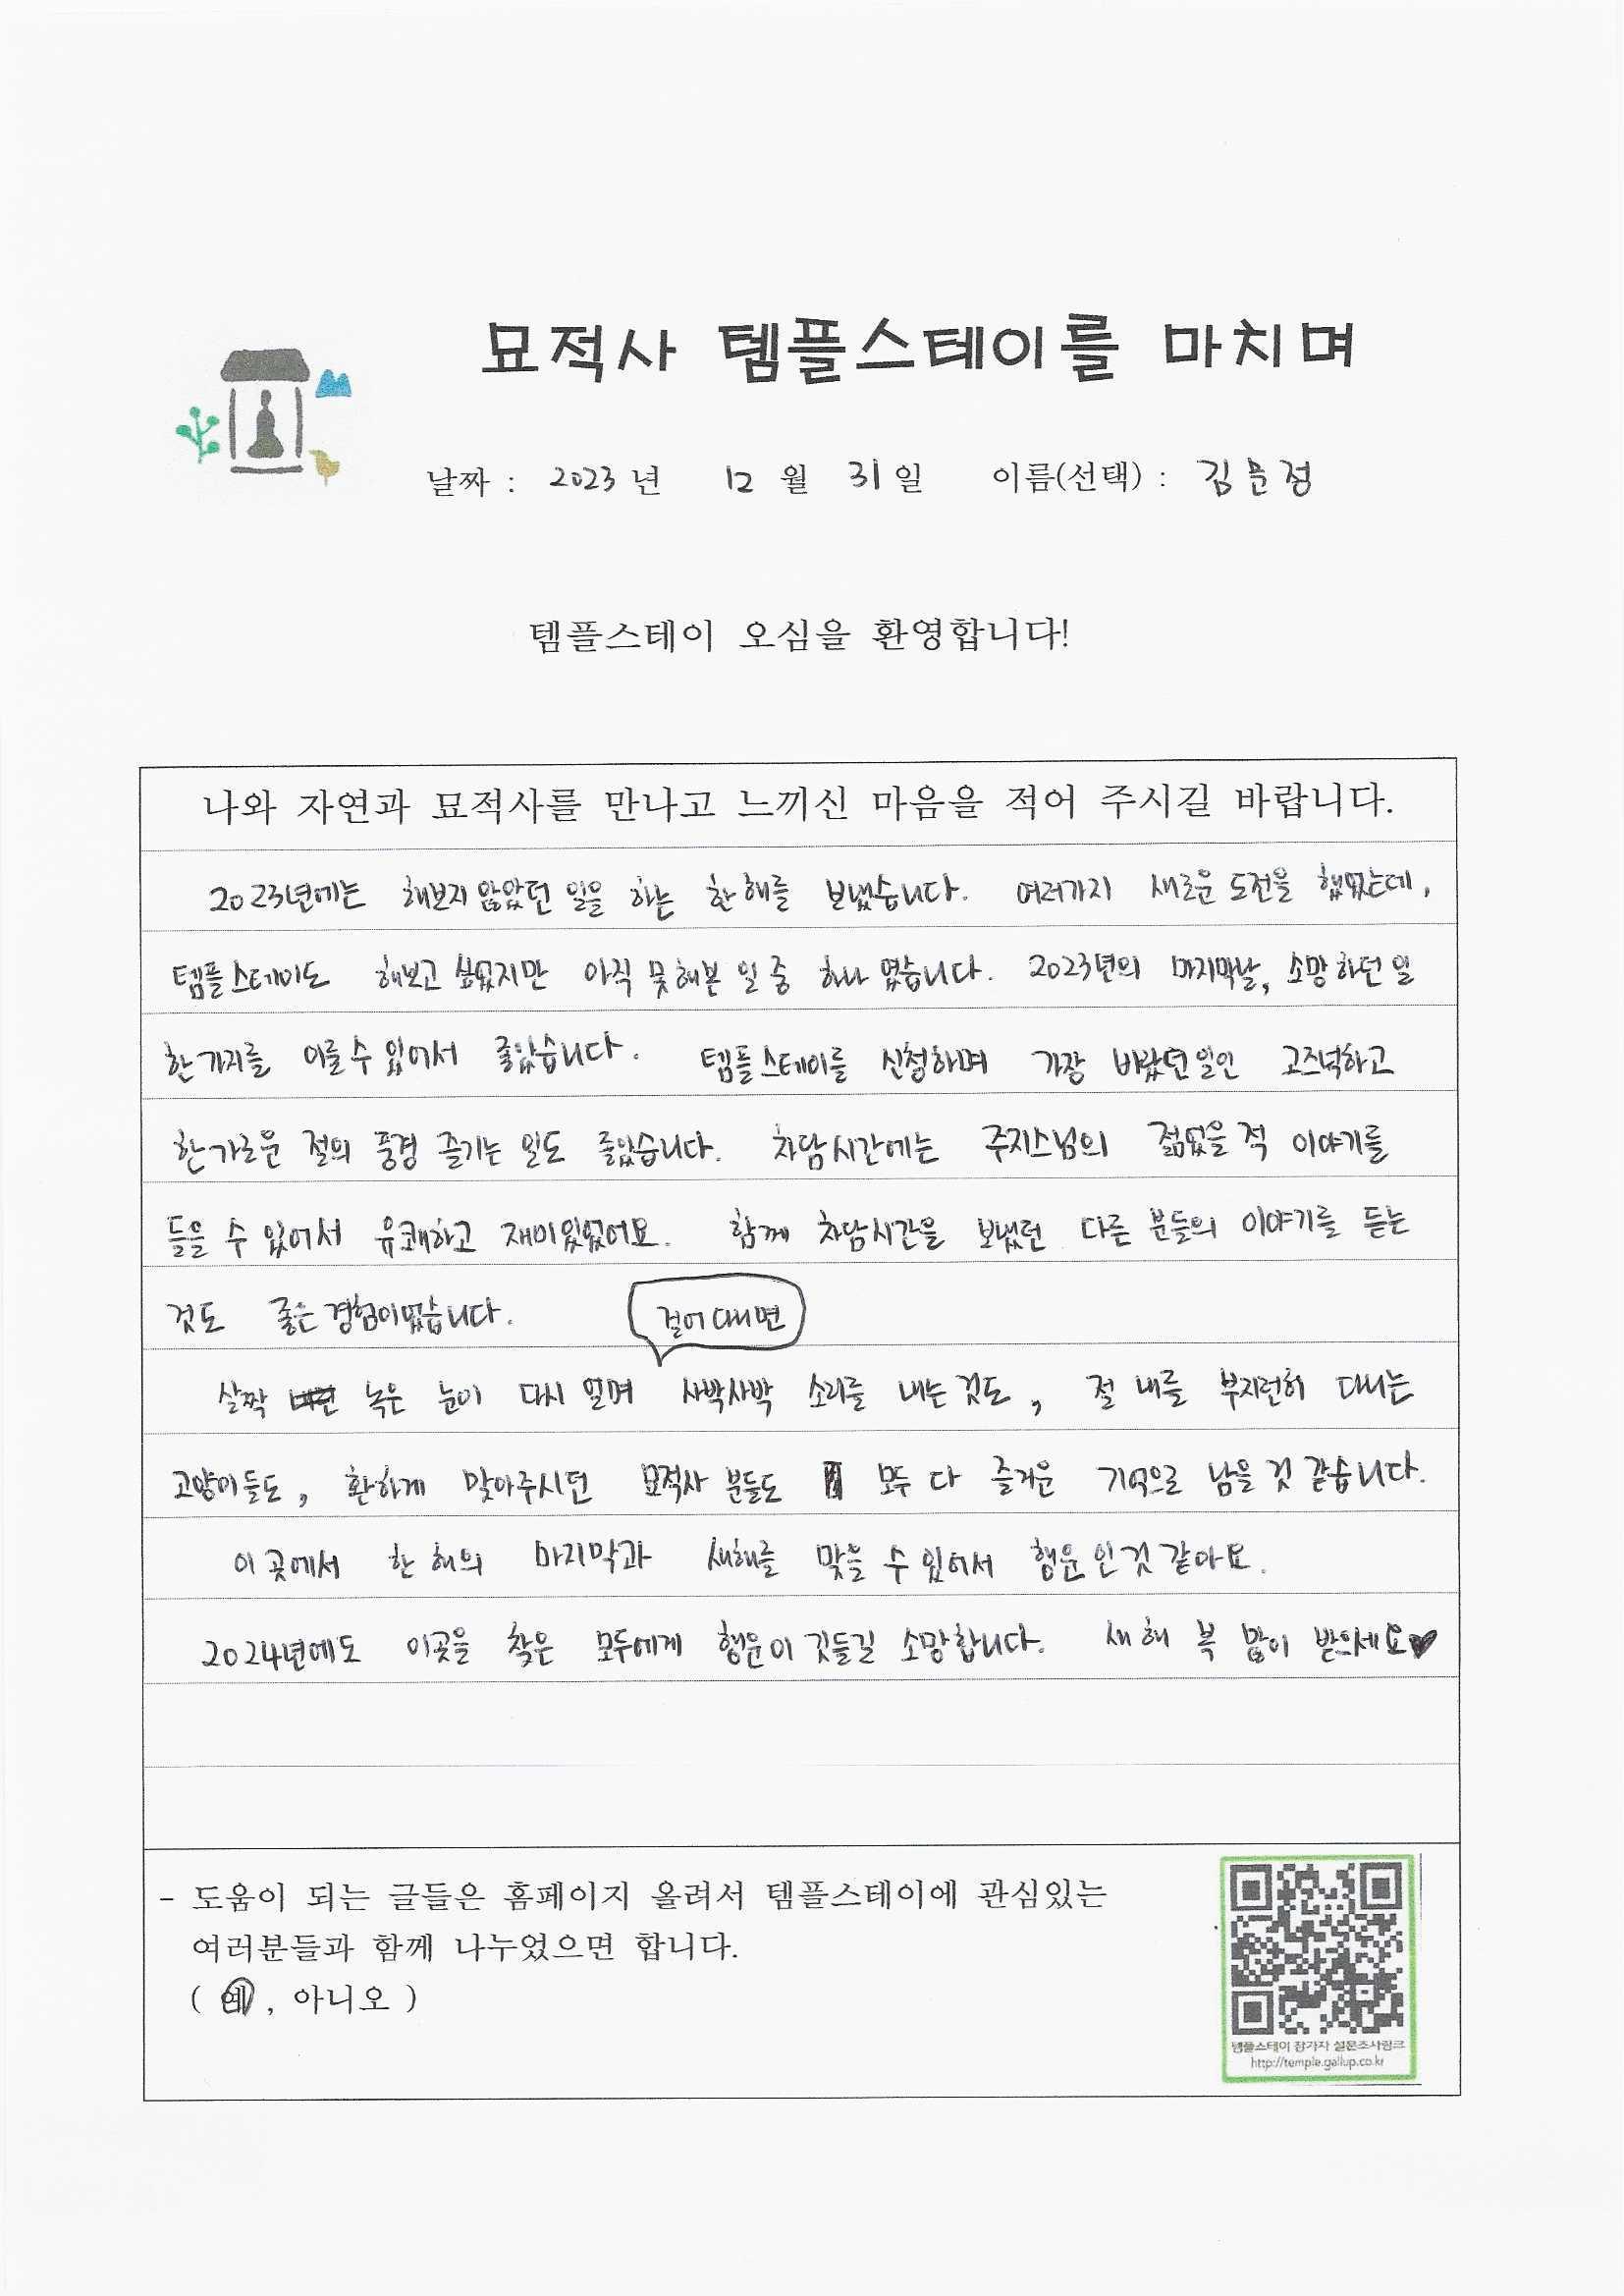 묘적사 템플스테이를 마치며
날짜 : 2023 년 12 월 31 일 이름(선택) : 김문정
템플스테이 오심을 환영합니다!
나와 자연과 묘적사를 만나고 느끼신 마음을 적어 주시길 바랍니다.
2023년에는 해보지 않았던 일을 하는 한 해를 보냈습니다. 여러가지 새로운 도전을 했었는데,
템플스테이도 해보고 싶었지만 아직 못해본 일 중 하나였습니다. 2023년의 마지막날, 소망하던 일
한 가지를 이룰 수 있어서 좋았습니다. 템플스테이를 신청하며 가장 바랐던 일인 고즈넉하고
한가로운 절의 풍경 즐기는 일도 좋았습니다. 차담시간에는 주지스님의 젊었을 적 이야기를
들을 수 있어서 유쾌하고 재미있었어요. 함께 차담시간을 보냈던 다른 분들의 이야기를 듣는
것도 좋은 경험이었습니다.
걸어 다니면
살짝 녹은 눈이 다시 얼며 사박사박 소리를 내는 것도, 절 내를 부지런히 다니는
고양이들도, 환하게 맞아주시던 묘적사 분들도 모두 다 즐거운 기억으로 남을 것 같습니다.
이 곳에서 한 해의 마지막과 새해를 맞을 수 있어서 행운인 것 같아요.
2024년에도 이곳을 찾은 모두에게 행운이 깃들길 소망합니다. 새해 복 많이 받으세요♥
- 도움이 되는 글들은 홈페이지 올려서 템플스테이에 관심있는
여러분들과 함께 나누었으면 합니다.
( 예 , 아니오 )
템플스테이 참가자 설문조사링크
http://temple.gallup.co.kr